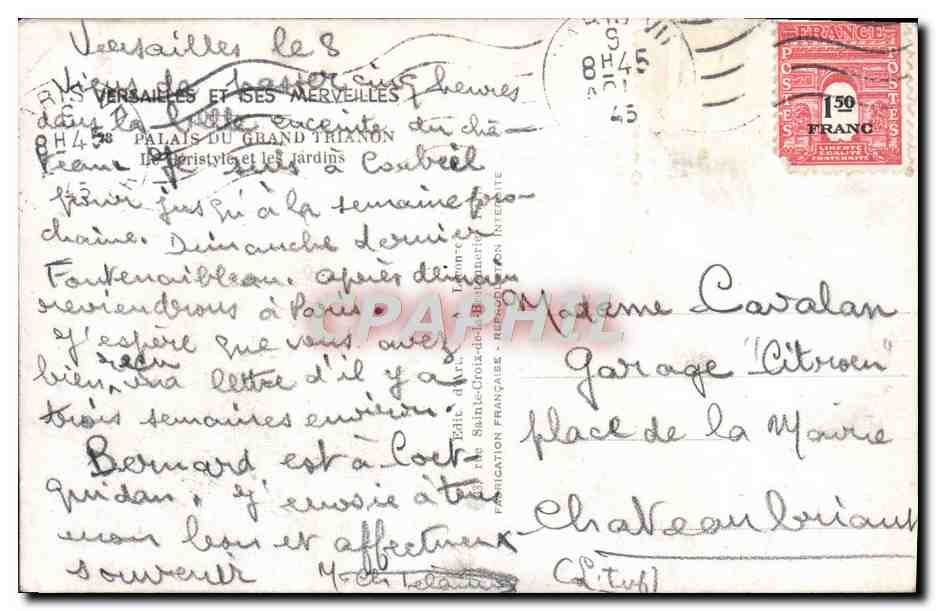 Versailles le 8
Viens de passer cinq heures
dans la belle enceinte du châ-
teau. Je suis à Corbeil
pour jusqu'à la semaine pro-
chaine. Dimanche dernier
Fontenaibleau. après demain
reviendrons à Paris.
J'espère que vous avez
bien reçu ma lettre d'il y a
trois semaines environ.
Bernard est à Coet-
quidan. J'envoie à tous
mon bon et affectueux
souvenir
VERSAILLES ET SES MERVEILLES
PALAIS DU GRAND TRIANON
Le Péristyle et les Jardins
Edit. d'Art
rue Sainte-Croix-de-la-Bretonnerie
FABRICATION FRANÇAISE - REPRODUCTION INTERDITE
CPAPHIL
8H45
45
8H45
45
FRANCE
POSTES
POSTES
1,50
FRANC
LIBERTÉ
EGALITÉ
FRATERNITÉ
Madame Cavalan
Garage "Citroen"
place de la Mairie
Chateaubriant